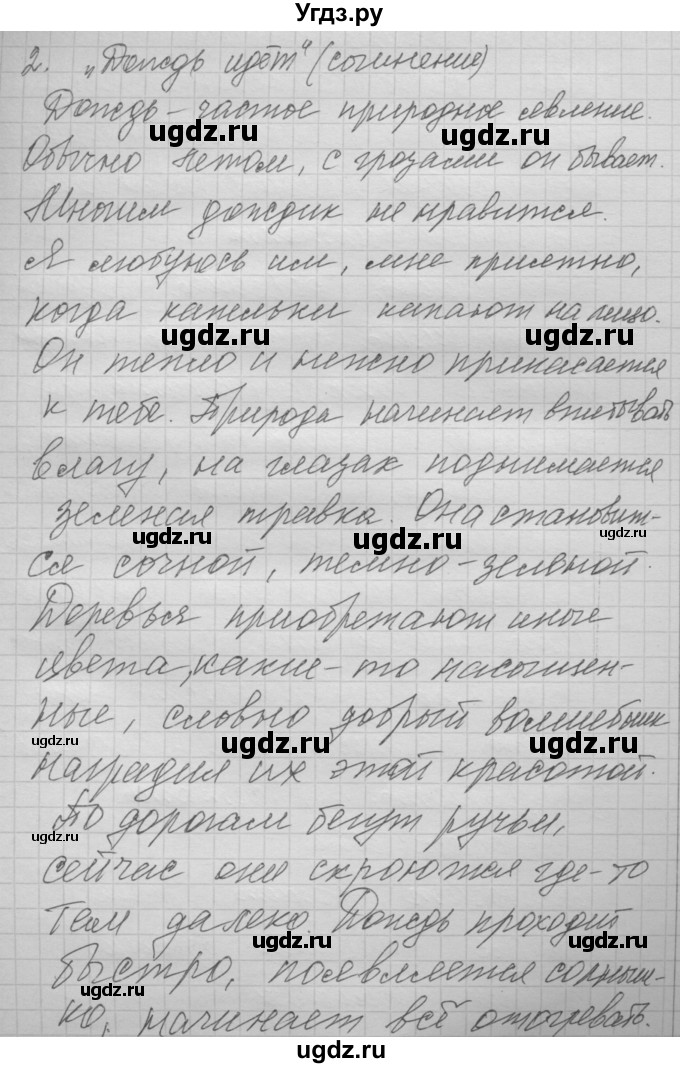 Угдз.ру
2. „Дождь идёт" (сочинение)
Дождь – частое природное явление.
ugdz.ru ugdz.ru
Обычно летом, с грозами он бывает.
Многим дождик не нравится.
ugdz.ru
Я любуюсь им, мне приятно,
когда капельки капают на лицо.
ugdz.ru ugdz.ru
Он тепло и нежно прикасается
к тебе. Природа начинает впитывать
ugdz.ru
влагу, на глазах поднимается
зеленая травка. Она становит-
ugdz.ru ugdz.ru
ся сочной, темно-зеленой.
Деревья приобретают иные
ugdz.ru
цвета, какие-то насыщен-
ные, словно добрый волшебник
ugdz.ru ugdz.ru ugdz.ru
наградил их этой красотой.
По дорогам бегут ручьи,
ugdz.ru
сейчас они скроются где-то
там далеко. Дождь проходит
ugdz.ru ugdz.ru
быстро, появляется солныш-
ugdz.ru
ко, начинает всё отогревать.
ugdz.ru